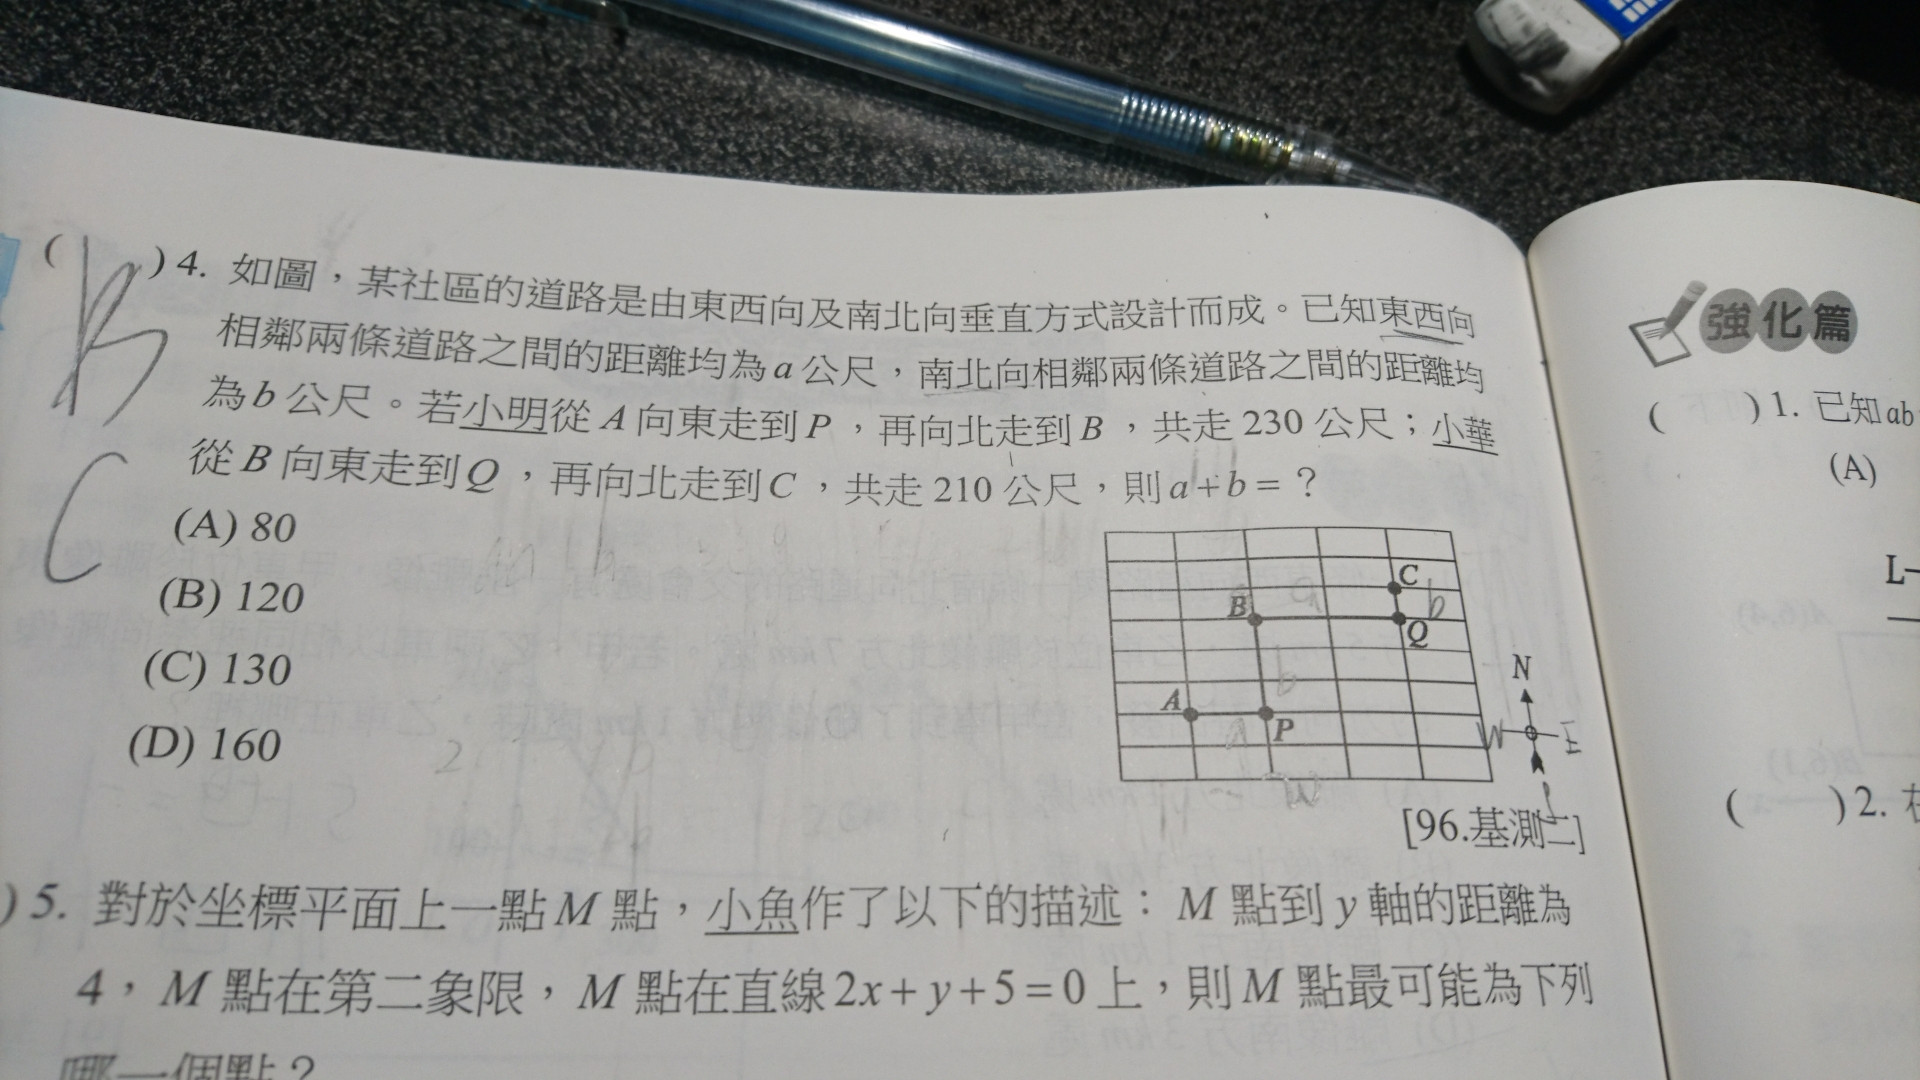 ( )4. 如圖,某社區的道路是由東西向及南北向垂直方式設計而成。已知東西向
相鄰兩條道路之間的距離均為a公尺,南北向相鄰兩條道路之間的距離均
為b公尺。若小明從A向東走到P,再向北走到B,共走230公尺;小華
從B向東走到Q,再向北走到C,共走210公尺,則a+b=?
B
C
(A) 80
(B) 120
(C) 130
(D) 160
C
b
B
a
Q
b
A
a
P
N
W
E
[96.基測二]
)5. 對於坐標平面上一點M點,小魚作了以下的描述:M點到y軸的距離為
4,M點在第二象限,M點在直線2x+y+5=0上,則M點最可能為下列
哪一個點?
強化篇
( )1. 已知ab
(A)
( )2.